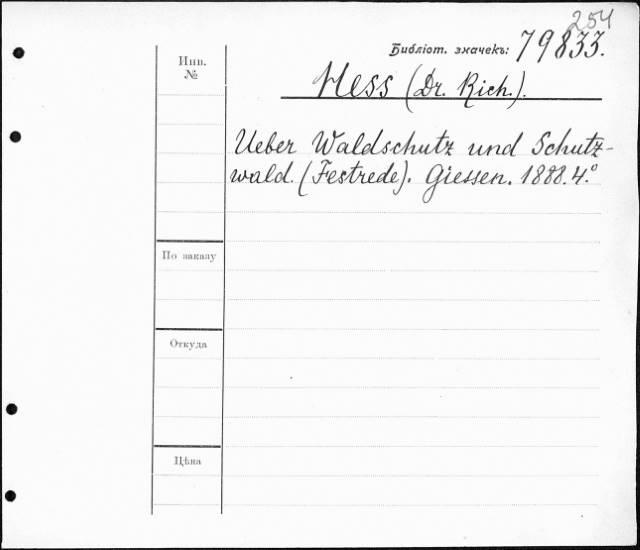 254
Библіот. значекъ: 79833.
Инв.
№
Hess (Dr. Rich.).
Ueber Waldschutz und Schutz-
wald. (Festrede). Giessen. 1888. 4.°
По заказу
Откуда
Цѣна